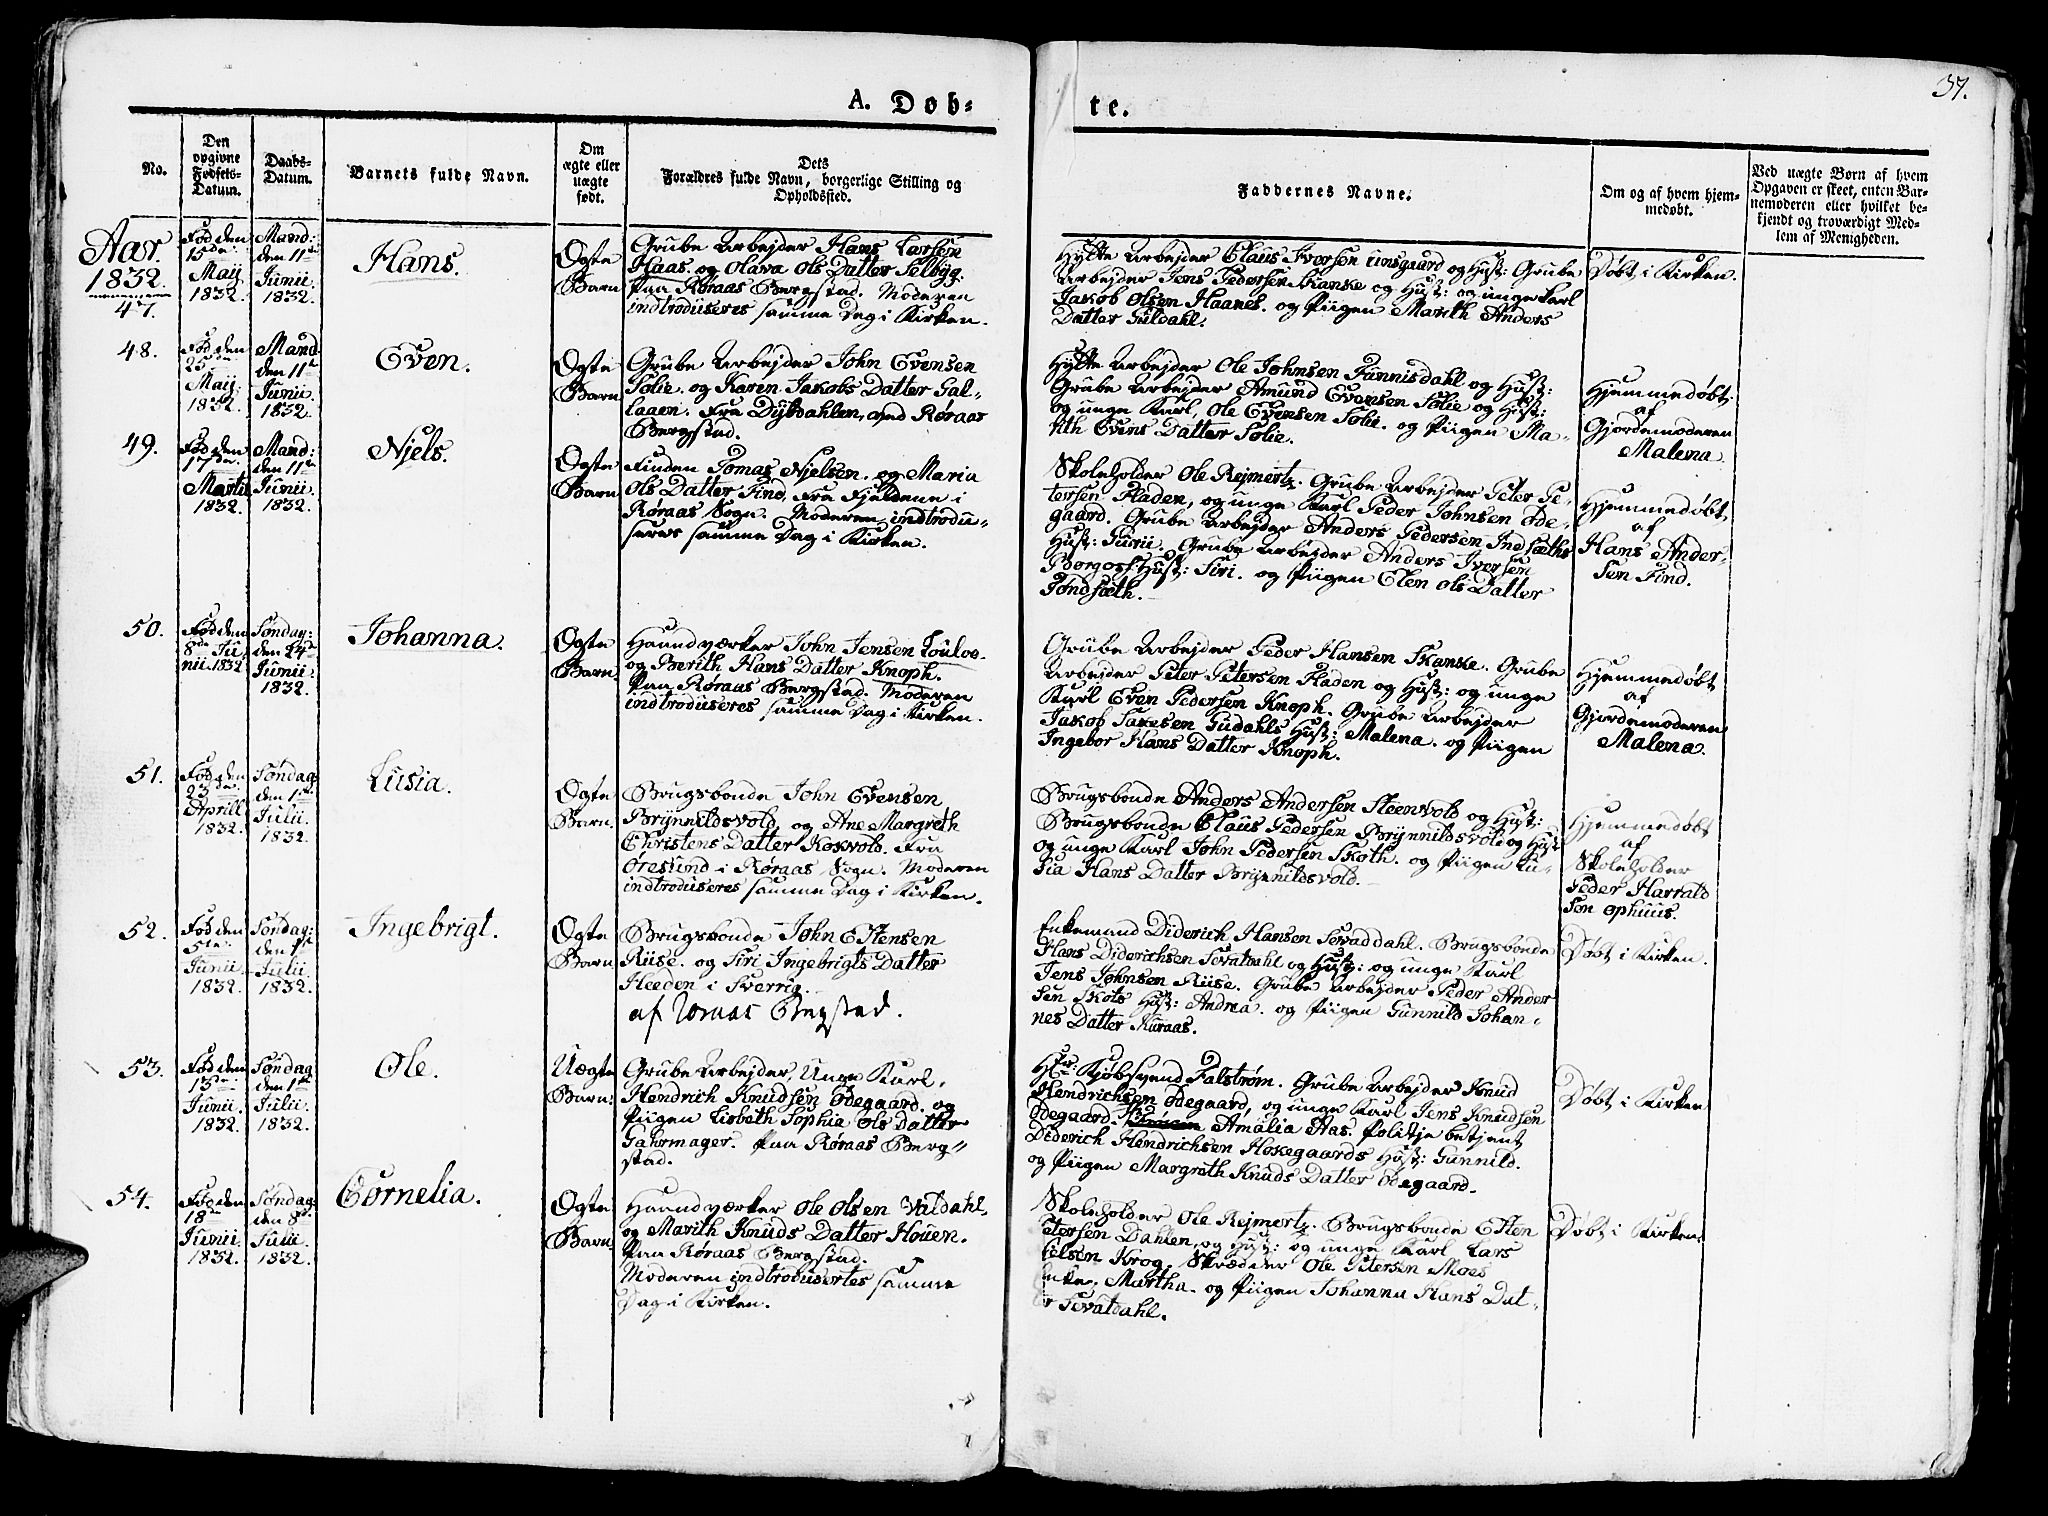 37.
A. Døb-
te.
No.
Den opgivne Fødsels-Datum.
Daabs-Datum.
Barnets fulde Navn.
Om ægte eller uægte født.
Dets Forældres fulde Navn, borgerlige Stilling og Opholdssted.
Faddernes Navne.
Om og af hvem hjemmedøbt.
Ved uægte Børn af hvem Opgaven er skeet, enten Barnemoderen eller hvilket bekjendt og troværdigt Medlem af Menigheden.
Aar.
1832.
47.
Fød den
15de
Maij
1832.
Mand:
den 11te
Junii
1832.
Hans.
Ægte
Barn
Grube Arbejder Hans Larsen
Haas. og Olava Ols Datter Selbyg.
paa Røraas Bergstad. Moderen
indtroduseres samme Dag i Kirken.
Hytte Arbejder Claus Iversen Uusgaard og Hust: Grube
Arbejder Jens Pedersen Skanke og Hust: og unge Karl
Jakob Olsen Haanes. og Piigen Marith Anders
Datter Guldahl.
Døbt i Kirken.
48.
Fød den
Maij
1832.
Mand
den 11te
Junii
1832.
Even.
Ægte
Barn
Grube Arbejder John Evensen
Solie. og Karen Jakobs Datter Gal-
laaen. Fra Dijbdahlen, ved Røraas
Bergstad.
Hytte Arbejder Ole Johnsen Funnisdahl og Hust:
Grube Arbejder Amund Evensen Solie og Hust:
og unge Karl, Ole Evensen Solie. og Piigen Ma-
rith Evens Datter Solie.
Hjemmedøbt
af
Gjordemoderen
Malena.
49.
Fød den
17de
Martii
1832.
Mand:
den 11te
Junii.
1832.
Njels.
Ægte
Barn
Finden Tomas Njelsen. og Maria
Ols Datter Find. Fra Fjeldene i
Røraas Sogn. Moderen indtrodu-
seres samme Dag i Kirken.
Skoleholder Ole Rejmertz. Grube Arbejder Peter Pe-
tersen Fladen, og unge Karl Peder Johnsen Øde-
gaard. Grube Arbejder Anders Pedersen Indsæths
Hust: Gurii. Grube Arbejder Anders Iversen
Borgos Hust: Siri. og Piigen Elen Ols Datter
Tøndsæth.
Hjemmedøbt
af
Hans Ander-
sen Find.
50.
Fød den
8de Ju-
nii. 1832
Søndag:
den 24de
Junii
1832.
Johanna.
Ægte
Barn.
Haandværker John Jensen Coulos.
og Berith Hans Datter Knoph.
paa Røraas Bergstad. Moderen
indtroduseres samme Dag i Kirken.
Grube Arbejder Peder Hansen Skanske. Grube
Arbejder Peter Petersen Fladen og Hust: og unge
Karl Even Pedersen Knoph. Grube Arbejder
Jakob Gudahls Hust: Malena. og Piigen
Ingebor Hans Datter Knoph.
Hjemmedøbt
af
Gjordemoderen
Malena.
51.
Fød den
23de
Aprill
1832.
Søndag
den 1ste
Julii.
1832.
Lusia.
Ægte
Barn.
Brugsbonde John Evensen
Brynnildsvold og Ane Margreth
Christens Datter Rokvold. Fra
Øresund i Røraas Sogn. Moderen
indtroduseres samme Dag i Kirken.
Brugsbonde Anders Andersen Steenvold og Hust:
Brugsbonde Claus Pedersen Brynnildsvold og Hust
og unge Karl John Pedersen Skoth. og Piigen Lu-
sia Hans Datter Brynnildsvold.
Hjemmedøbt
af
Skoleholder
Peder Harrald
sen Ophuus.
52.
Fød den
5te
Junii
1832.
Søndag:
den 1ste
Julii.
1832.
Ingebrigt.
Ægte
Barn
Brugsbonde John Estensen
Riise. og Siri Ingebrigts Datter
Heeden i Sverrig.
af Roraas Bergstad.
Enkemand Diderich Hansen Sevaddahl. Brugsbonde
Hans Diderichsen Sevatdahl og Hust: og unge Karl
Jens Johnsen Riise. Grube Arbejder Peder Ander
sen Skots Hust: Andrea. og Piigen Gunnild Johan-
nes Datter Kuraas.
Døbt i Kirken.
53.
Fød den
13de
Junii.
1832.
Søndag
den 1ste
Julii.
1832.
Ole.
Uægte
Barn:
Grube Arbejder, Unge Karl,
Hendrich Knudsen Ødegaard. og
Piigen Lisbeth Sophie Ols Datter
Gahrmager. paa Røraas Berg-
stad.
Hr: Kjøbsvend Falstrøm. Grube Arbejder Knud
Hendrichsen Ødegaard, og unge Karl Jens Knudsen
Ødegaard. Amalia Aas. Politje betjent
Diderich Hendrichsen Hokegaards Hust: Gunnild.
og Piigen Margreth Knuds Datter Ødegaard.
Døbt i Kirken
54.
Fød den
18de
Junii.
1832.
Søndag:
den 8de
Julii
1832.
Cornelia.
Ægte
Barn.
Haandværker Ole Olsen Valdahl.
og Marith Knuds Datter Houen.
paa Røraas Bergstad.
Moderen indtrodusertes samme
Dag i Kirken.
Skoleholder Ole Rejmertz. Brugsbonde Esten
Petersen Dahlen, og Hust: og unge Karl Lars
Eilsen Krog. Skrædder Ole Petersen Moes
Enke, Martha. og Piigen Johanna Hans Dat-
er Sevatdahl.
Døbt i Kirken.